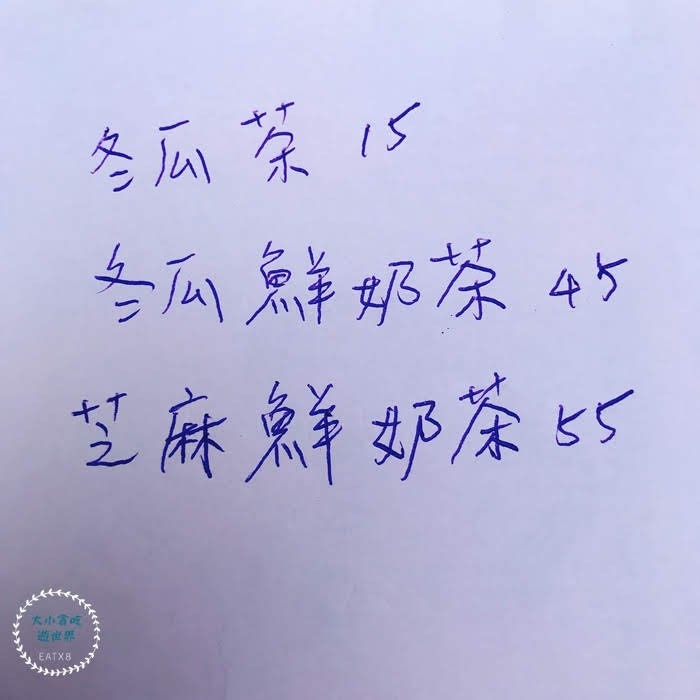 冬瓜茶 15
冬瓜鮮奶茶 45
芝麻鮮奶茶 55
大小貪吃
遊世界
EATX8